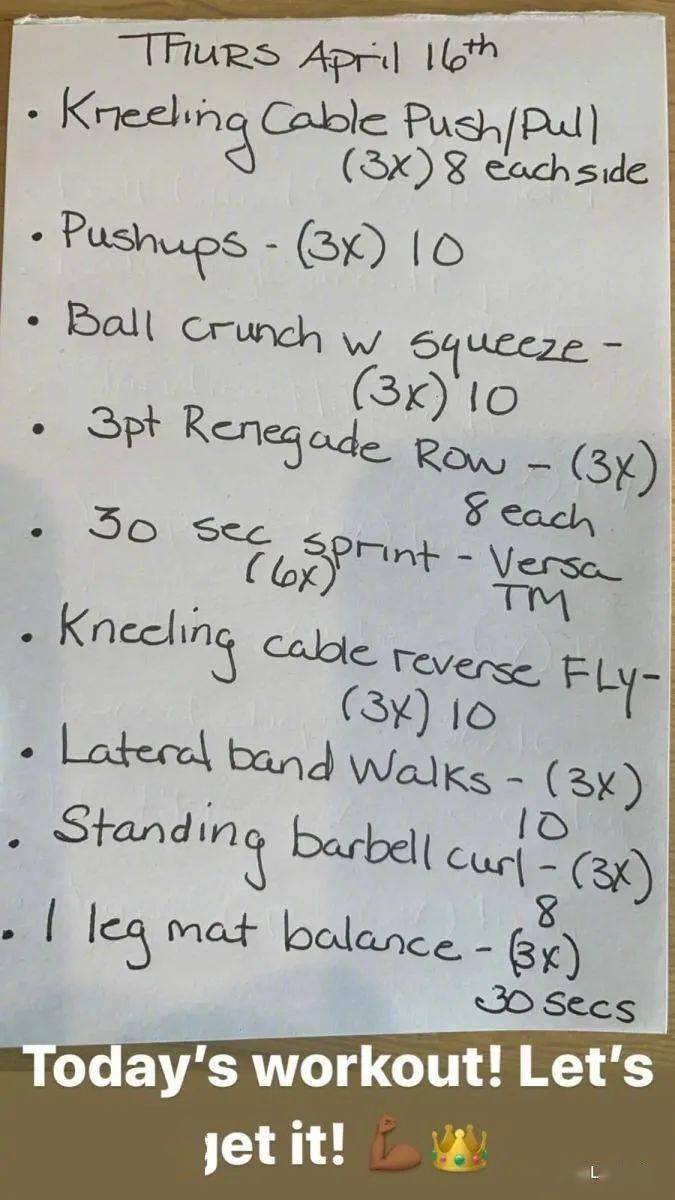 THURS April 16th
• Kneeling Cable Push/Pull
(3X) 8 each side
• Pushups - (3X) 10
• Ball crunch w squeeze -
(3X) 10
• 3pt Renegade Row - (3X)
8 each
• 30 sec sprint - Versa
(6X) TM
• Kneeling cable reverse FLy-
(3X) 10
• Lateral band Walks - (3X)
10
• Standing barbell curl - (3X)
8
• 1 leg mat balance - (3X)
30 secs
Today's workout! Let's
get it! 💪🏾👑
L